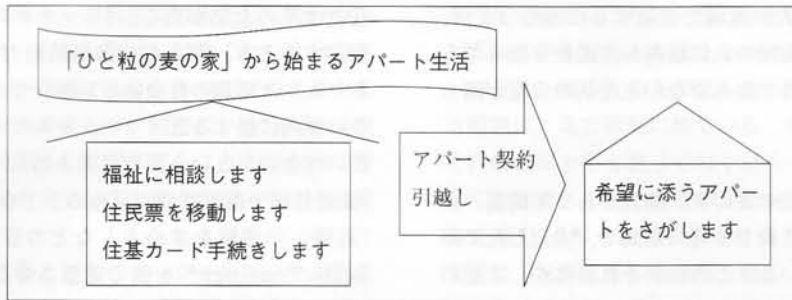 「ひと粒の麦の家」から始まるアパート生活
福祉に相談します
住民票を移動します
住基カード手続きします
アパート契約
引越し
希望に添うアパー
トをさがします